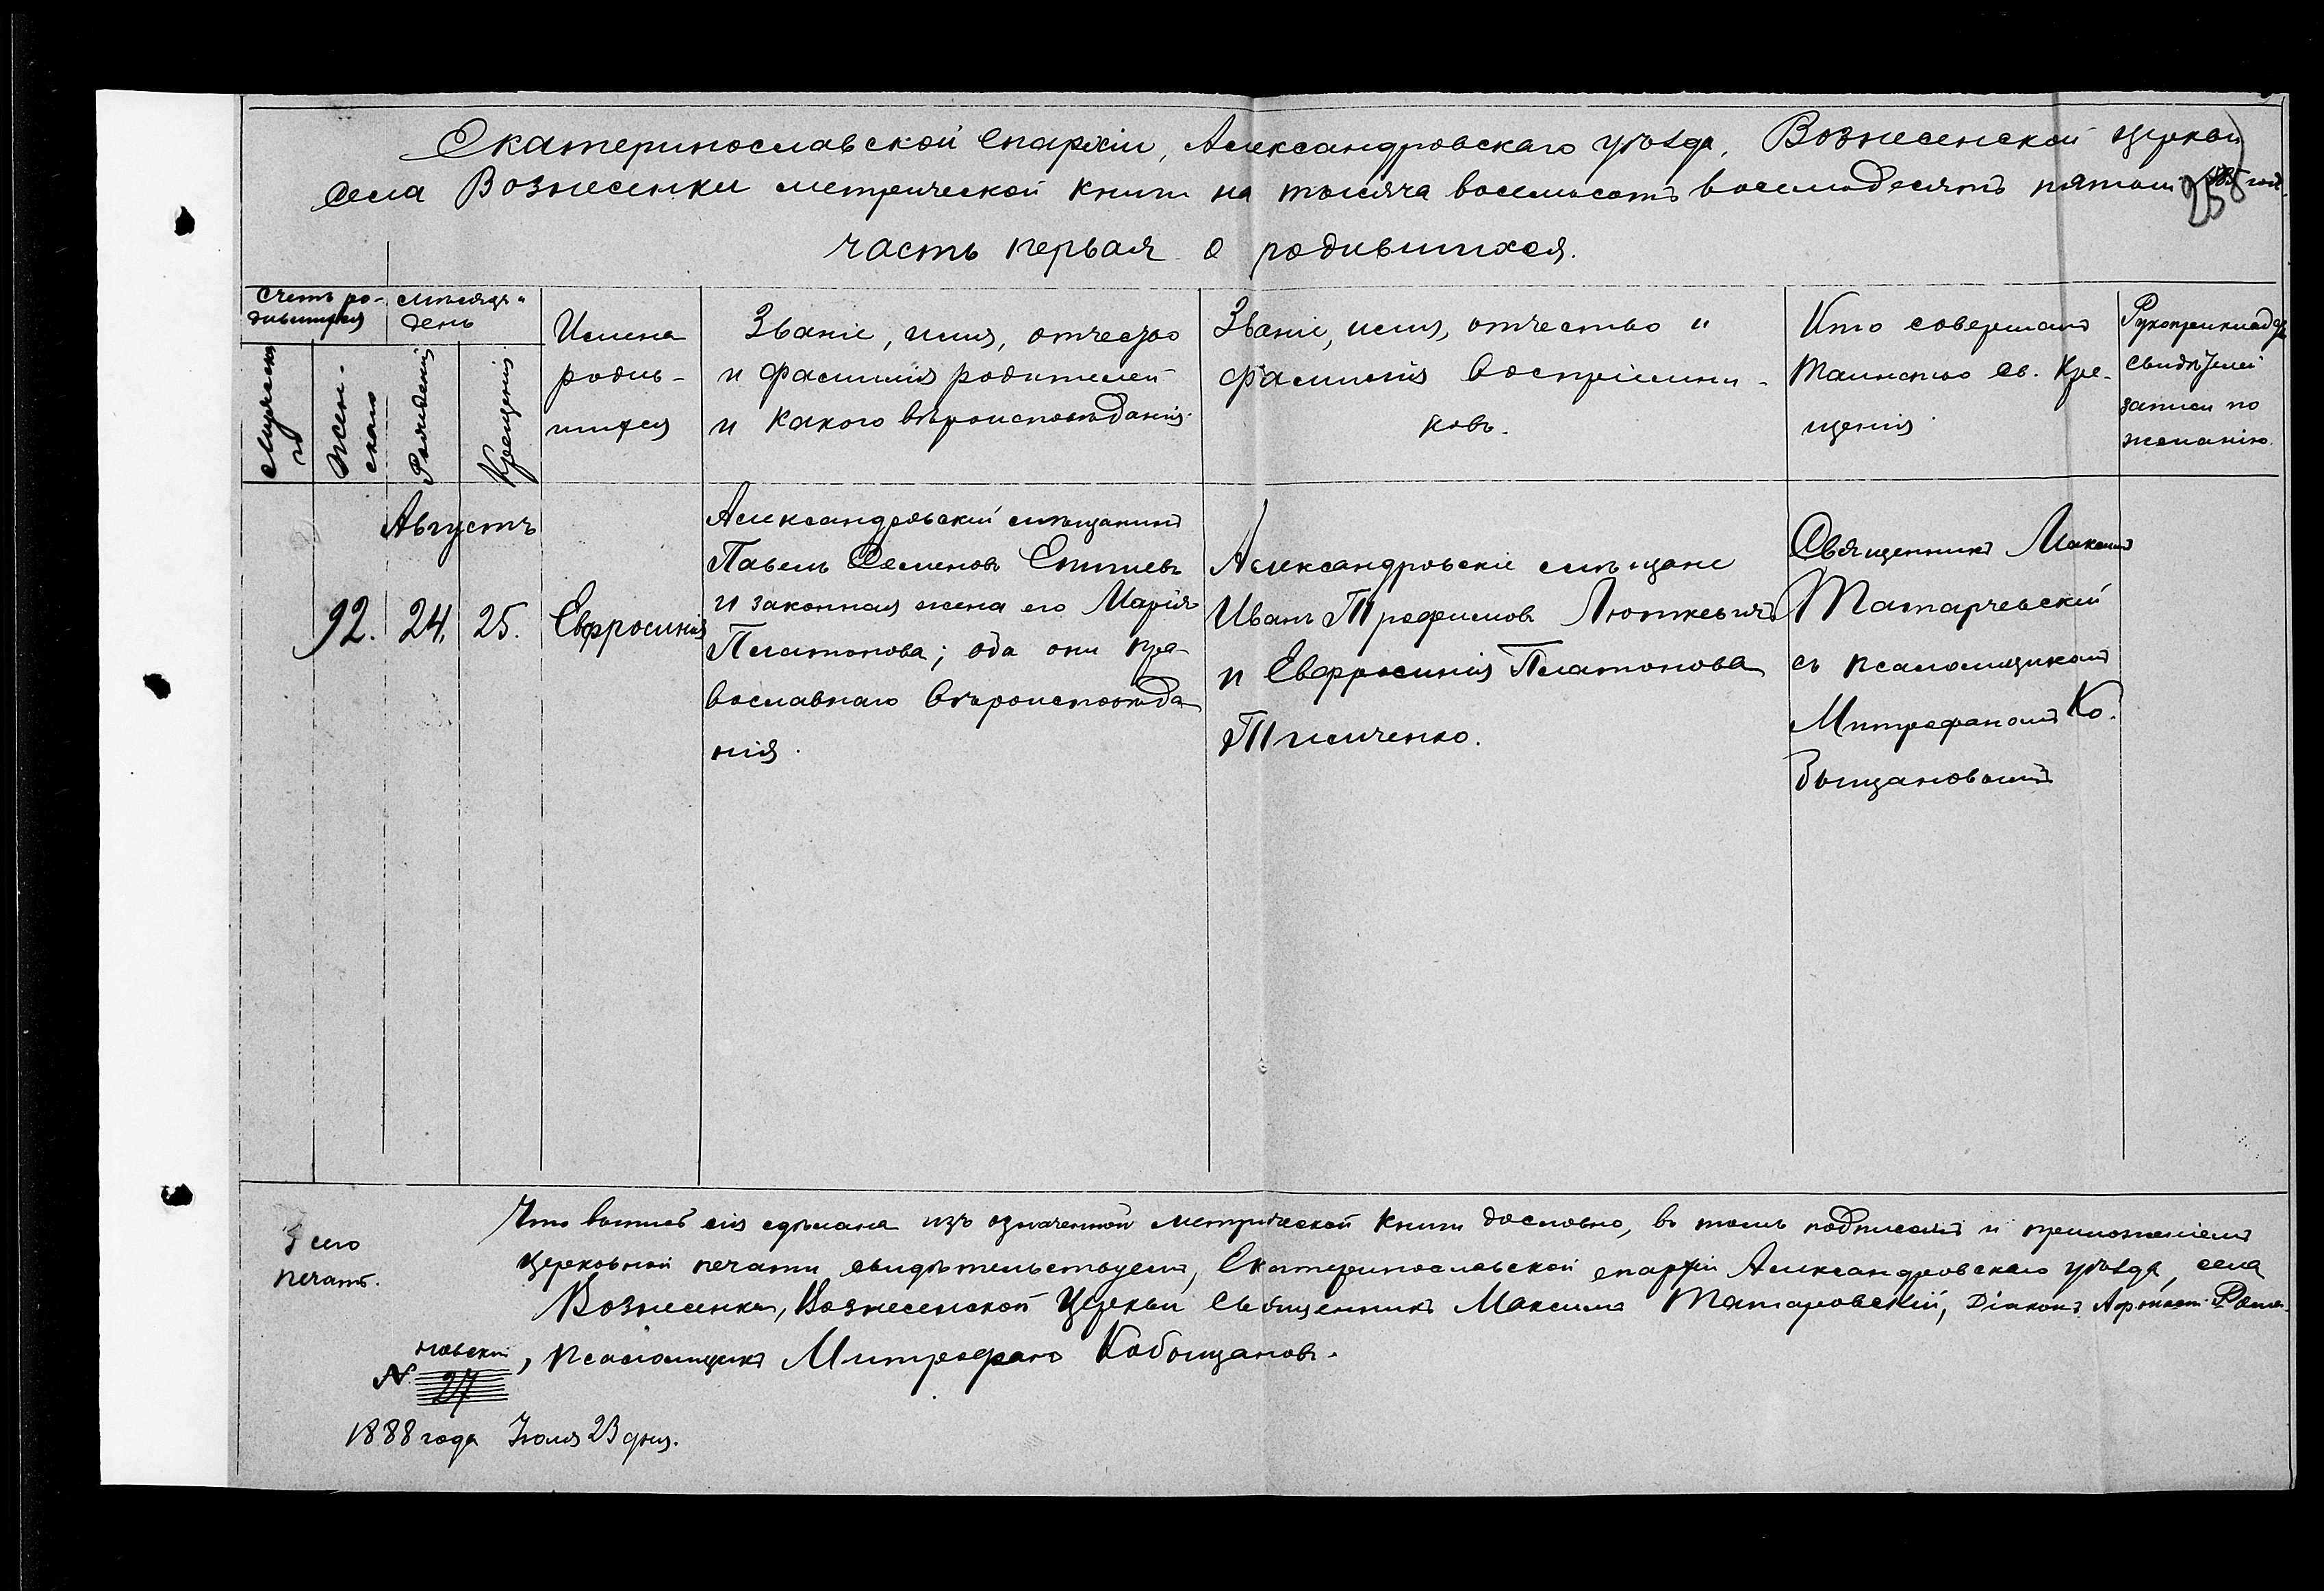 Екатеринославской Епархіи, Александровскаго уѣзда, Вознесенской церкви
села Вознесенки метрической книги на тысяча восемьсотъ восемьдесятъ пятый 1885 годъ
часть первая о родившихся.
Счетъ ро-
дившихся
Мѣсяцъ и
день
Мужеска
го
Жен-
скаго
Рожденія
Крещенія
Имена
родив-
шихся
Званіе, имя, отчество
и фамилія родителей
и какого вѣроисповѣданія.
Званіе, имя, отчество и
фамилія воспріемни-
ковъ.
Кто совершалъ
таинство св. Кре-
щенія
Рукоприклад.
свидѣтелей
записи по
желанію.
Августъ
92. 24. 25. Евфросинія
Александровскій мѣщанинъ
Павелъ Семеновъ
и законная жена его Марія
Платонова; оба они пра-
вославнаго вѣроисповѣда
нія.
Александровскіе мѣщане
Иванъ Трофимовъ Люткевичъ
и Евфросинія Платонова
Священникъ Максимъ
съ псаломщикомъ
Митрофаномъ Ко-
быщановымъ
Что выпись сія сдѣлана изъ означенной метрической книги дословно, въ томъ подписомъ и приложеніемъ
церковной печати свидѣтельствуемъ, Екатеринославской епархіи Александровскаго уѣзда, села
Вознесенки, Вознесенской Церкви Священникъ Максимъ Татаровскій, Діаконъ Рома-
новскій, Псаломщикъ Митрофанъ Кобыщановъ.
М сто
печати.
№ 27
1888 года Іюля 23 дня.
25